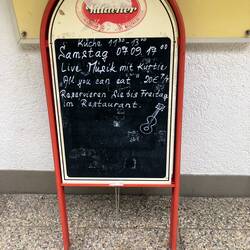 Villacher
Küche 11³⁰ - 13⁰⁰
Samstag 07.09. 17⁰⁰
Live Musik mit Kurtie
All you can eat 20€
Reservieren Sie bis Freitag
im Restaurant.